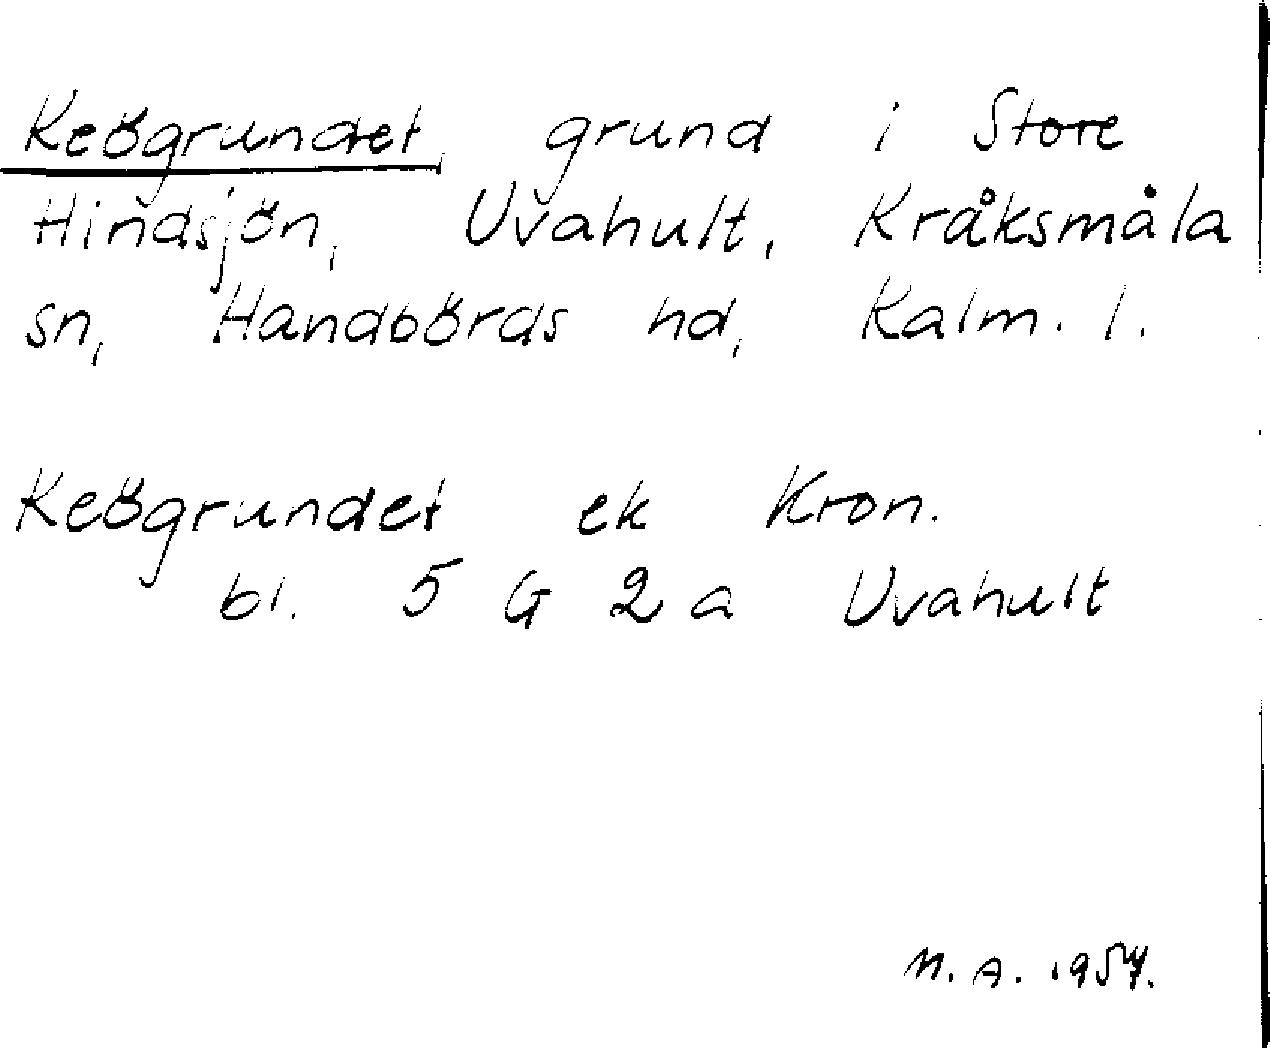 Keögrundet, grund i Store
Hindsjön, Uvahult, Kråksmåla
sn, Handbörds hd, Kalm. l.
Keögrundet ek Kron.
bl. 5 G 2 a Uvahult
N. A. 1957.